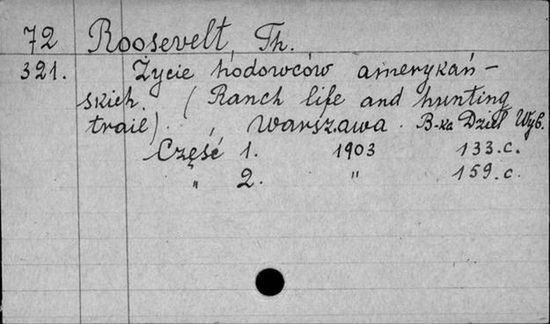 72 Roosevelt, Th.
321. Życie hodowców amerykań-
skich. (Ranch life and hunting
trail). , Warszawa. B-ka Dzieł Wyb.
Część 1. 1903 133.c.
" 2. " 159.c.